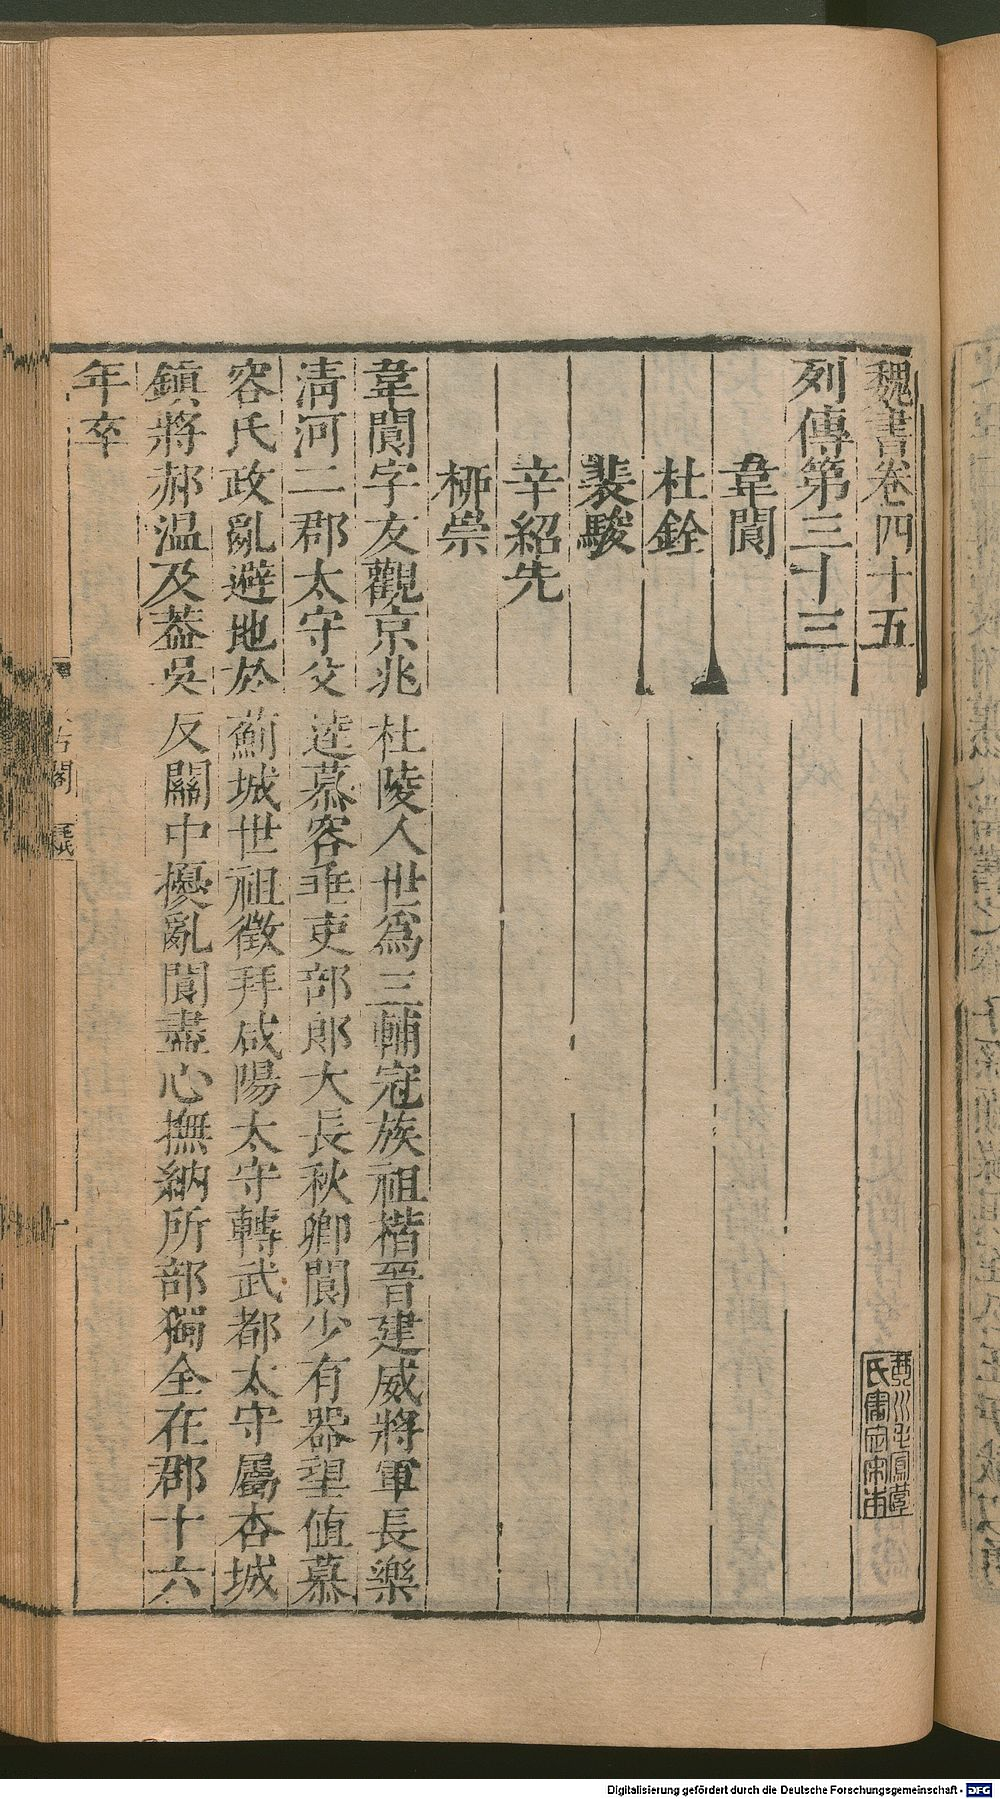 魏書卷四十五
列傳第三十三
韋閬
杜銓
裴駿
辛紹先
柳崇
韋閬字友觀京兆杜陵人世爲三輔冠族祖楷晉建威將軍長樂
清河二郡太守父逵慕容垂吏部郎大長秋卿閬少有器望值慕
容氏政亂避地於薊城世祖徵拜咸陽太守轉武都太守屬杏城
鎮將郝温及蓋吳反關中擾亂閬盡心撫納所部獨全在郡十六
年卒
古閣
毛氏
Digitalisierung gefördert durch die Deutsche Forschungsgemeinschaft - DFG